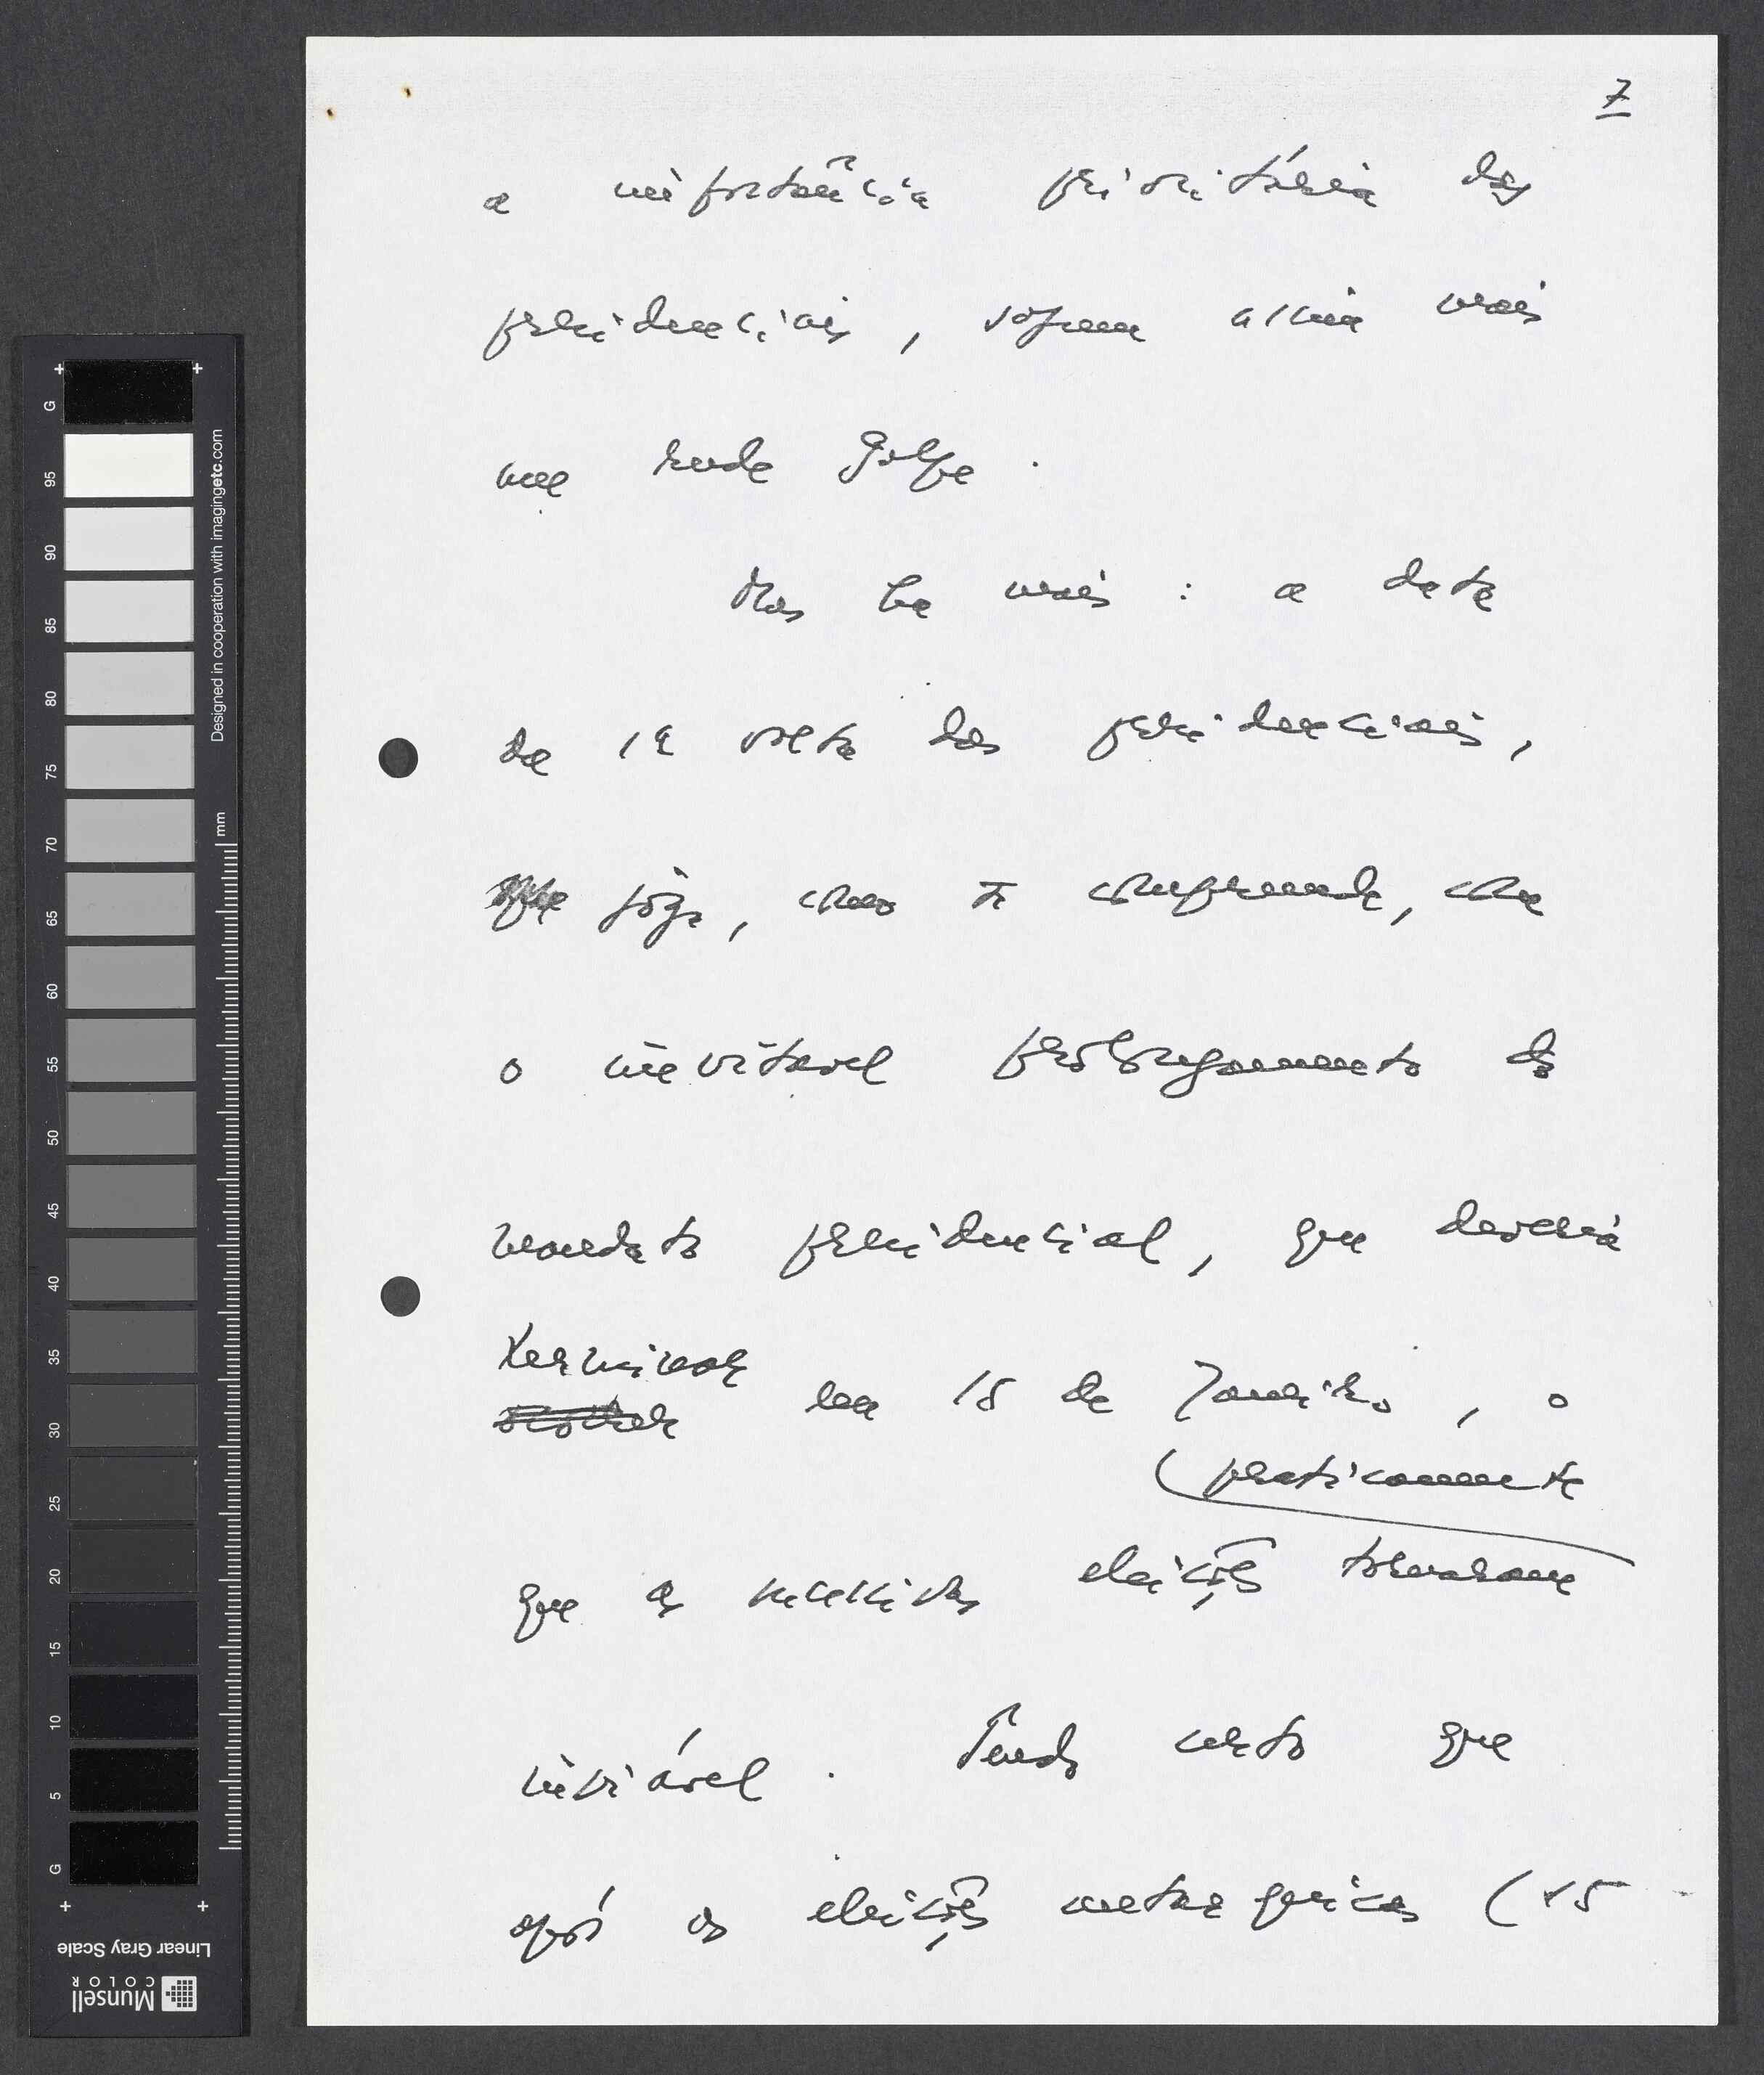 7
a importância prioritária das
presidenciais, sofreu assim mais
um rude golpe.
Mas há mais: a data
da 1ª volta das presidenciais,
que joga, como se compreende, com
o inevitável prolongamento do
mandato presidencial, que deveria
terminar
em 15 de Janeiro, o
praticamente
que as sucessivas eleições tornaram
inviável. Tendo certo que
após as eleições autárquicas (15
Designed in cooperation with imagingetc.com
mm
G
95
90
85
80
75
70
65
60
55
50
45
40
35
30
25
20
15
10
5
G
Linear Gray Scale
Munsell
COLOR